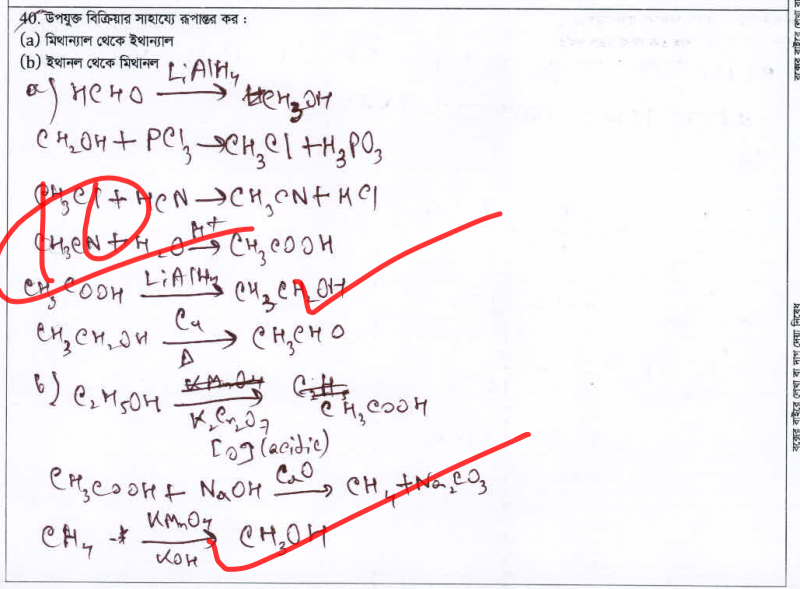 40. উপযুক্ত বিক্রিয়ার সাহায্যে রূপান্তর কর :
(a) মিথান্যাল থেকে ইথান্যাল
(b) ইথানল থেকে মিথানল
a) HCHO LiAlH4 → CH3OH
CH2OH + PCl3 → CH3Cl + H3PO3
CH3Cl + HCN → CH3CN + HCl
CH3CN + H2O H+ → CH3COOH
CH3COOH LiAlH4 → CH3CH2OH
CH3CH2OH Cu → Δ CH3CHO
b) C2H5OH KMnO4 → K2Cr2O7 C2H5 CH3COOH
[O] (acidic)
CH3COOH + NaOH CaO → CH4 + Na2CO3
CH4 KMnO4 → KOH CH3OH
10
বক্সের বাইরে লেখা বা দাগ দেয়া নিষেধ